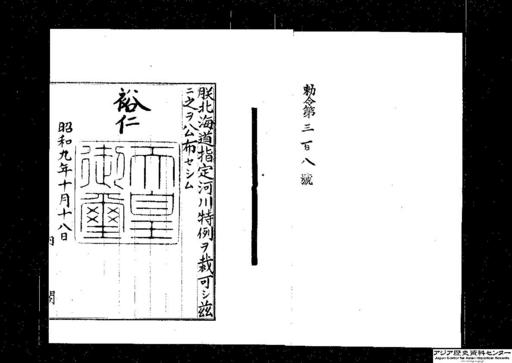 勅令第三百八號
朕北海道指定河川特例ヲ裁可シ茲
ニ之ヲ公布セシム
裕仁
天皇
御璽
昭和九年十月十八日
内閣
アジア歴史資料センター
Japan Center for Asian Historical Records